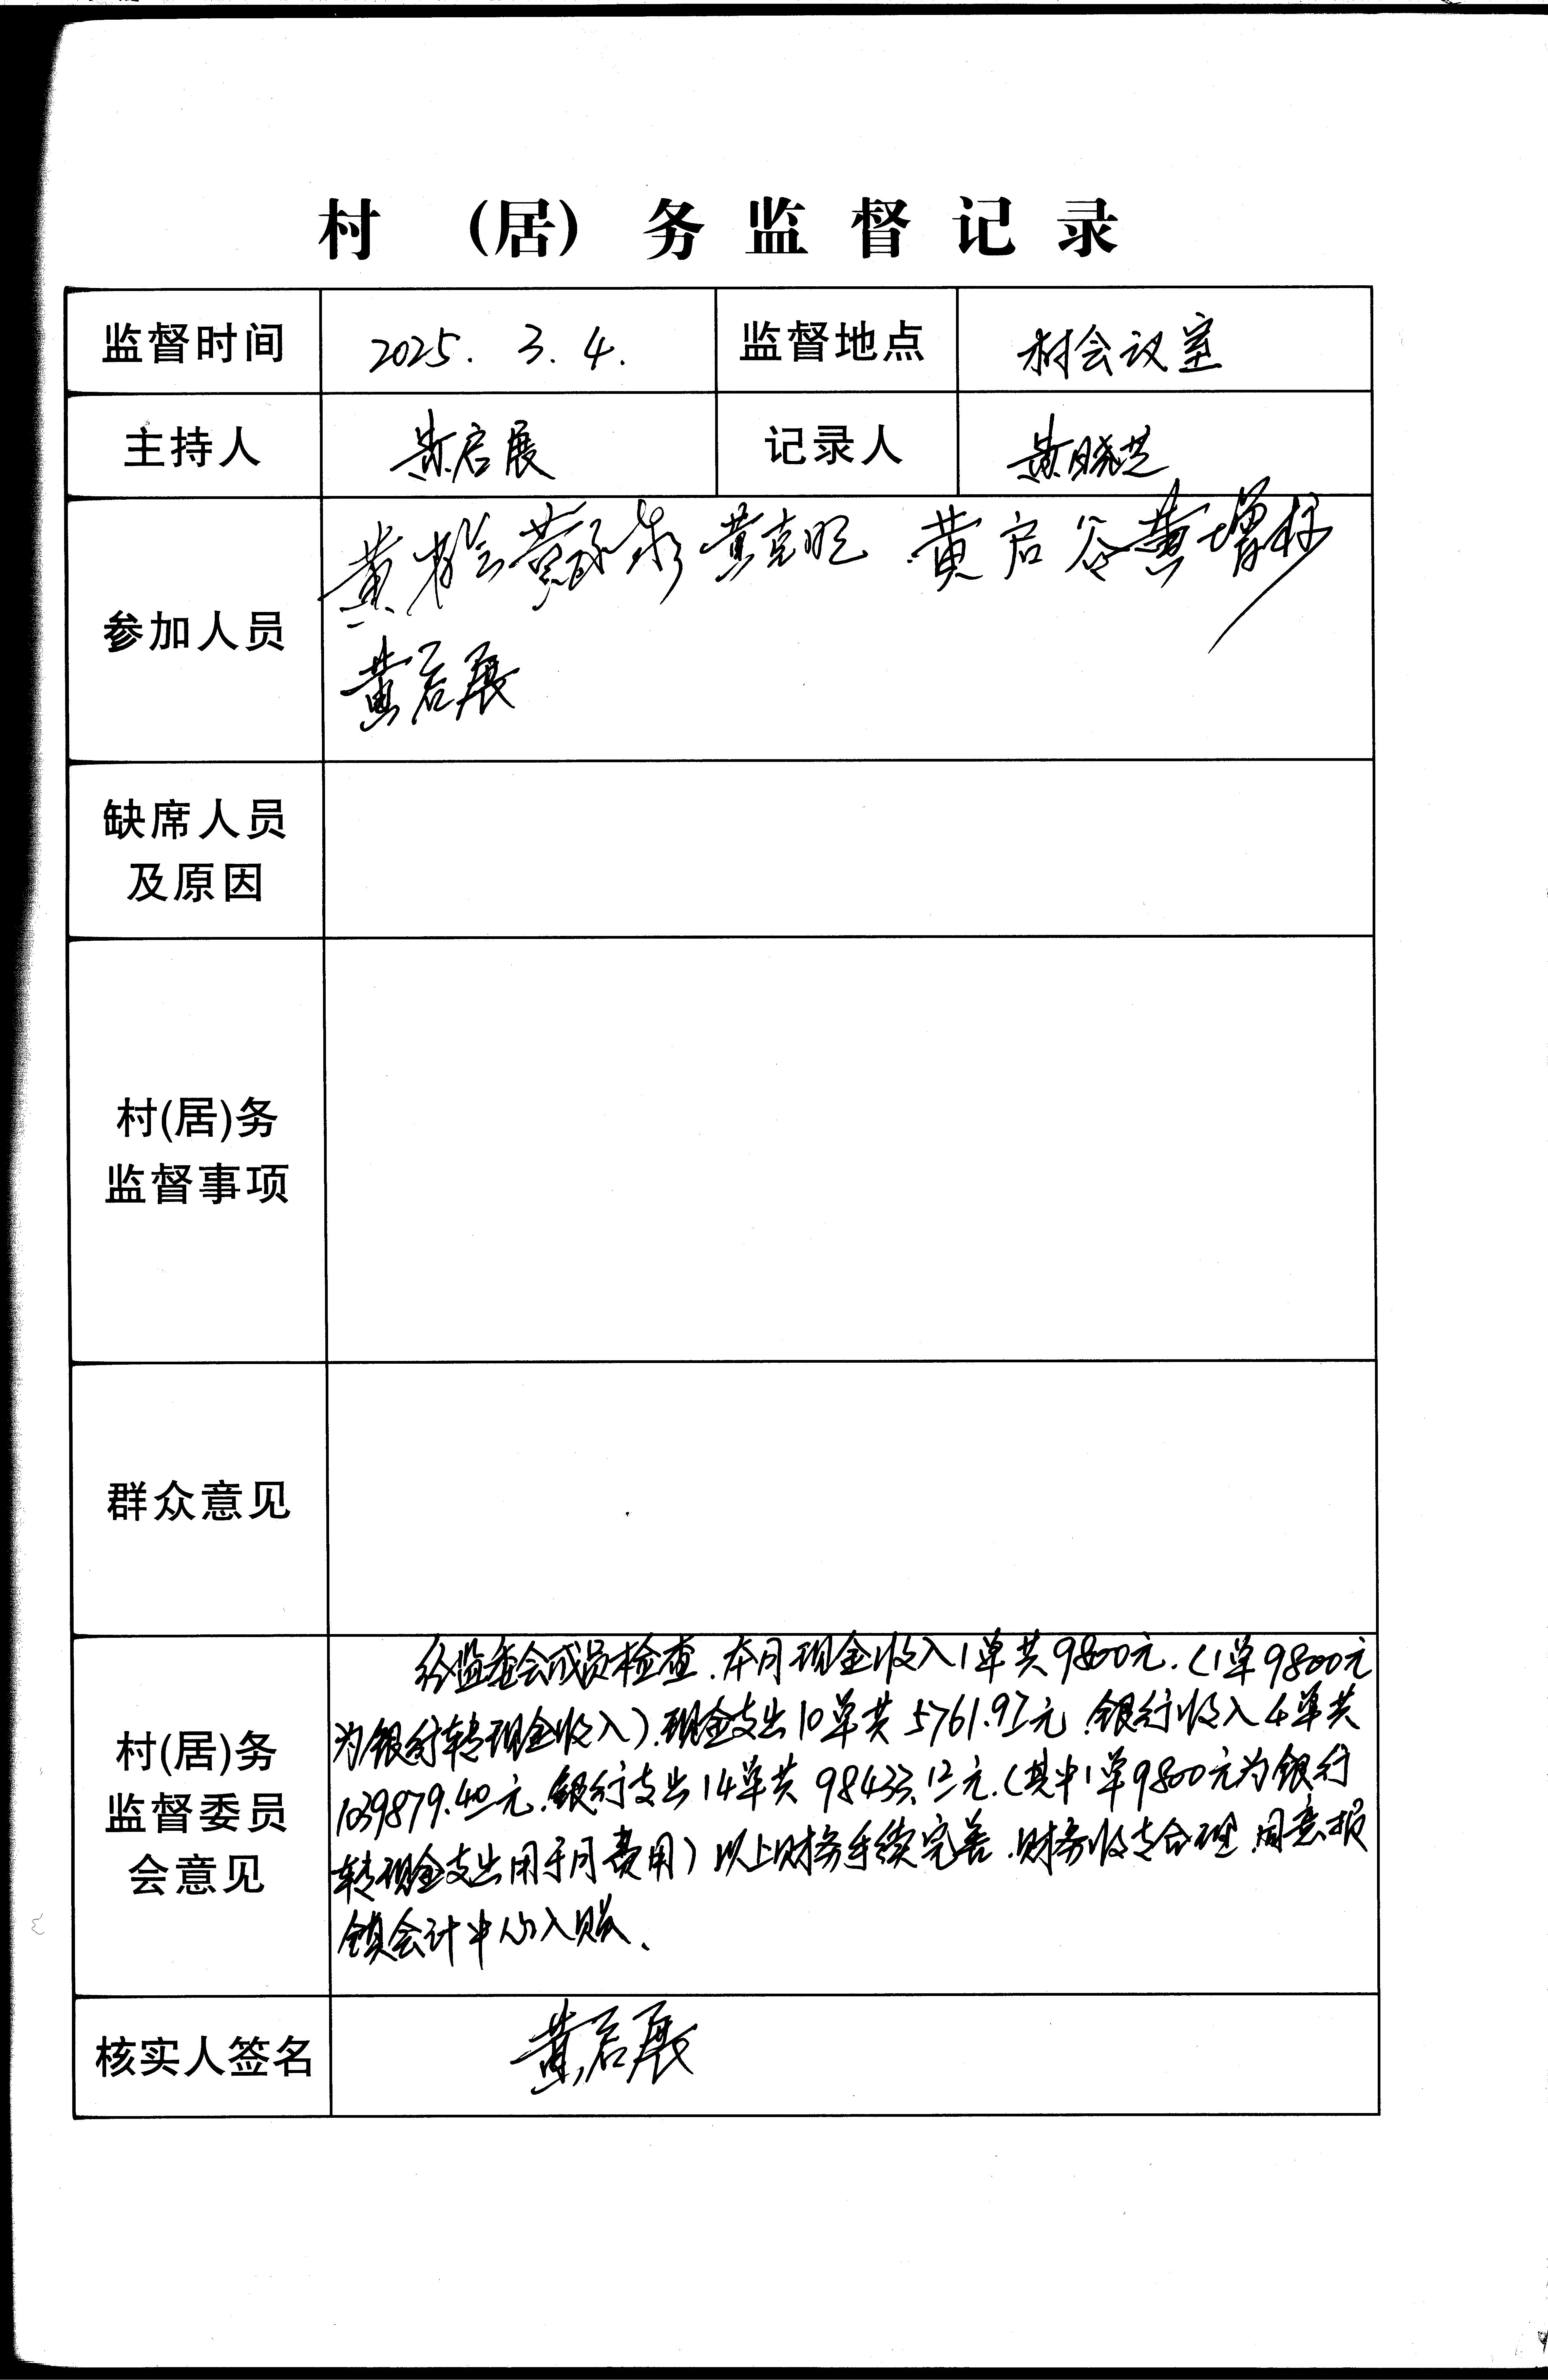 村 (居) 务监督记录
监督时间 2025. 3. 4. 监督地点 村会议室
主持人 黄启展 记录人 黄晓芝
参加人员 黄克旺 黄启谷 黄增标
黄启展
缺席人员
及原因
村(居)务
监督事项
群众意见
村(居)务
监督委员
会意见
经监查会成员检查.本月现金收入1单共9800元.(1单9800元
为银行转现金收入).现金支出10单共5761.92元.银行收入4单共
1039879.40元.银行支出14单共 元.(其中1单9800元为银行
转现金支出用于月费用)以上财务手续完善.财务收支合理.同意报
镇会计中心入账、
核实人签名 黄启展